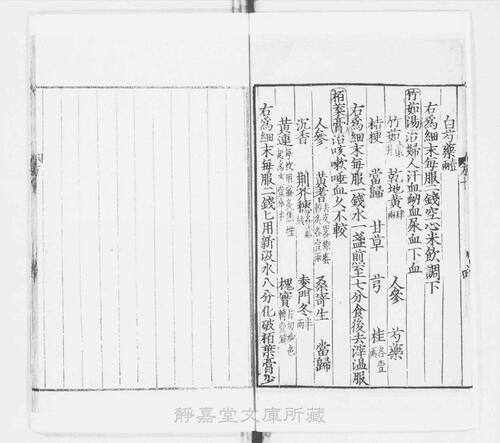 白芍藥
右爲細末每服二錢空心米飲調下
竹茹湯治婦人汗血衂血尿血下血
竹茹 乾地黄 人參 芍藥
桔梗 當歸 甘草 芎 桂各壹兩
右爲細末每服一錢水一盞煎至七分食後去滓温服
栢葉膏治咳嗽唾血久不較
人參 黄耆 桑寄生 當歸
沉香 荆芥穗 麥門冬 槐實
黄連
右爲細末每服二錢匕用新汲水八分化破栢葉膏少
靜嘉堂文庫所藏